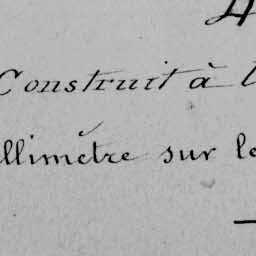 Construit à
llimètre sur le